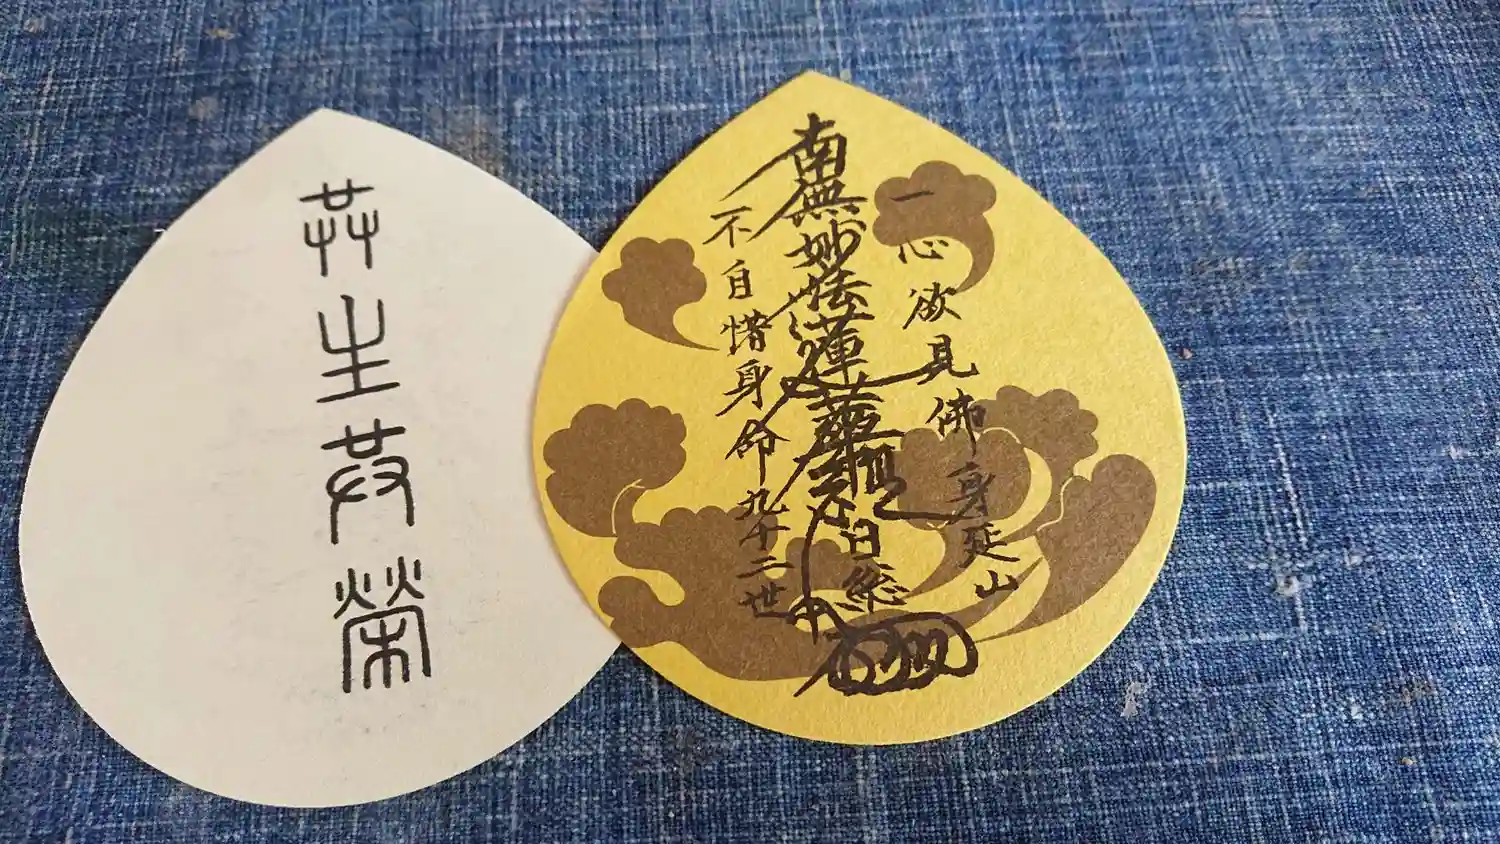 共生共榮
一心欲見佛 身延山
南無妙法蓮華經 日総
不自惜身命 九十二世